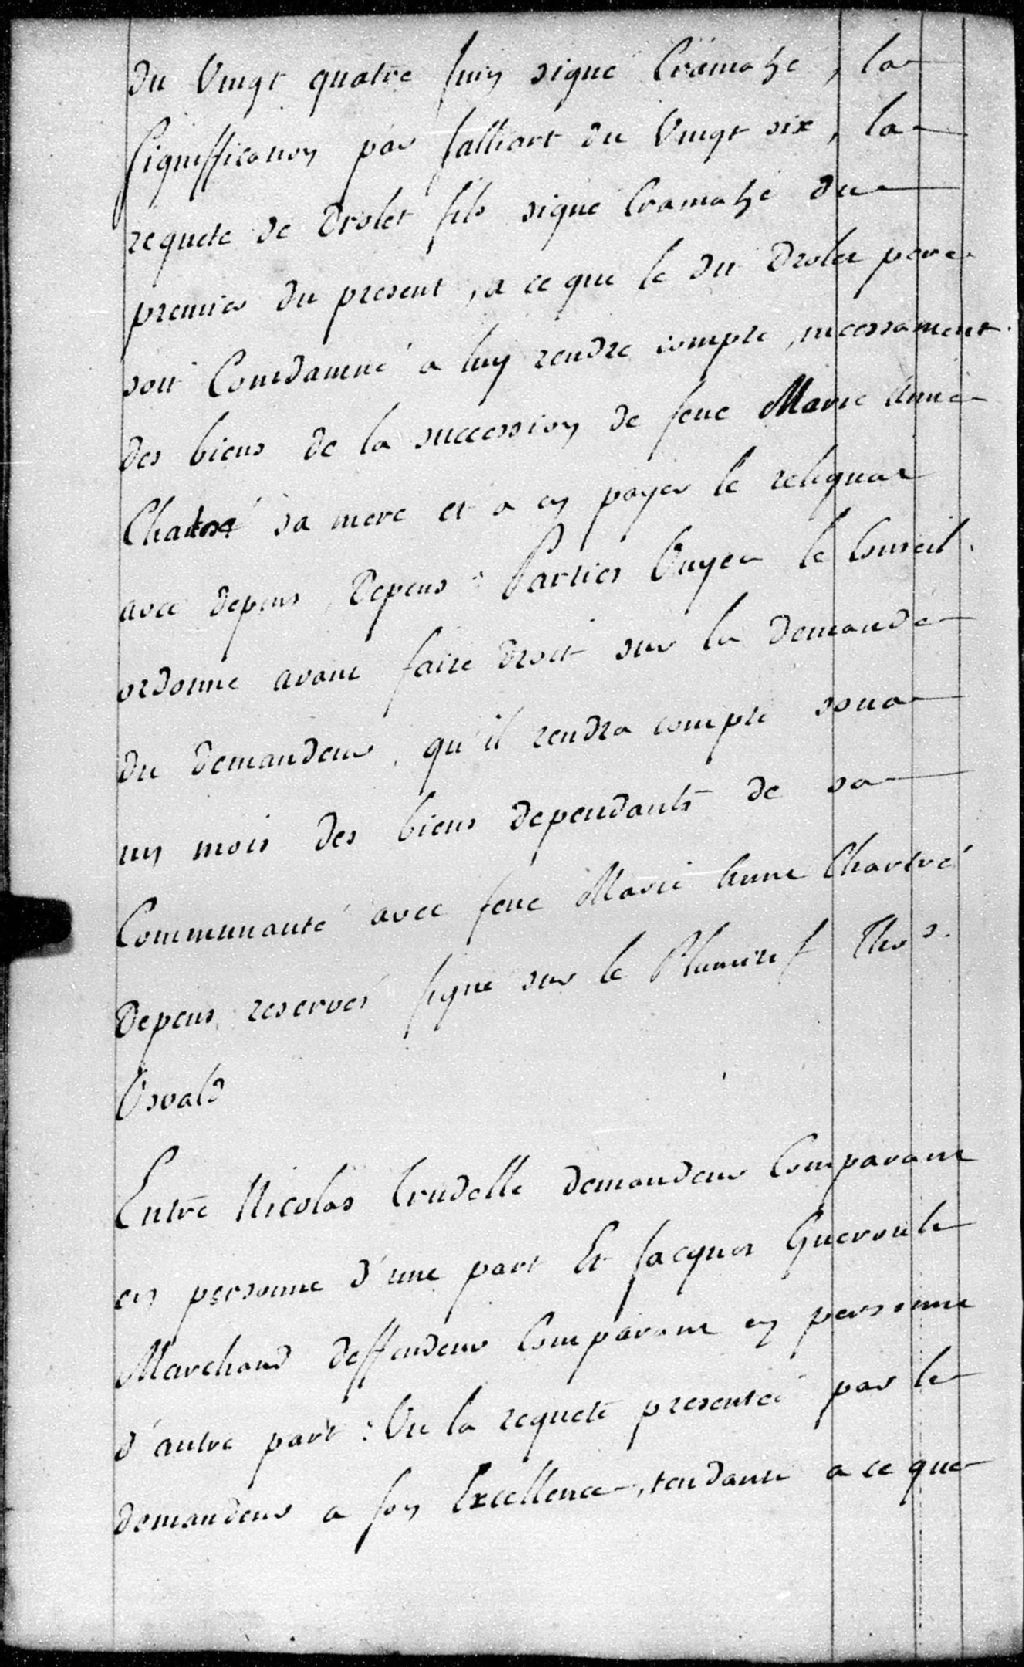 du Vingt quatre Juin signé Cramahé, la
Signiffication par Jalliant du Vingt six, la
requete de Drolet fils signé Cramahé du
premier du present, a ce que le dit Drolet pere
soit Condamné a luy rendre compte incessament
des biens de la succession de feue Marie Anne
Chartré sa mere et a en payer le reliquat
avec depens, Depens : Parties Ouyes le Conseil
ordonne avant faire droit sur la demande
du demandeur, qu'il rendra compte sous
un mois des biens dependants de sa
Communauté avec feue Marie Anne Chartré
Depens reservés signé sur le Plumitif Thos.
Osvald
Entre Nicolas Trudelle demandeur Comparant
en personne d'une part Et Jacques Gueroult
Marchand deffendeur Comparant en personne
d'autre part : Vu la requete presentée par le
demandeur a Son Excellence, tendante a ce que